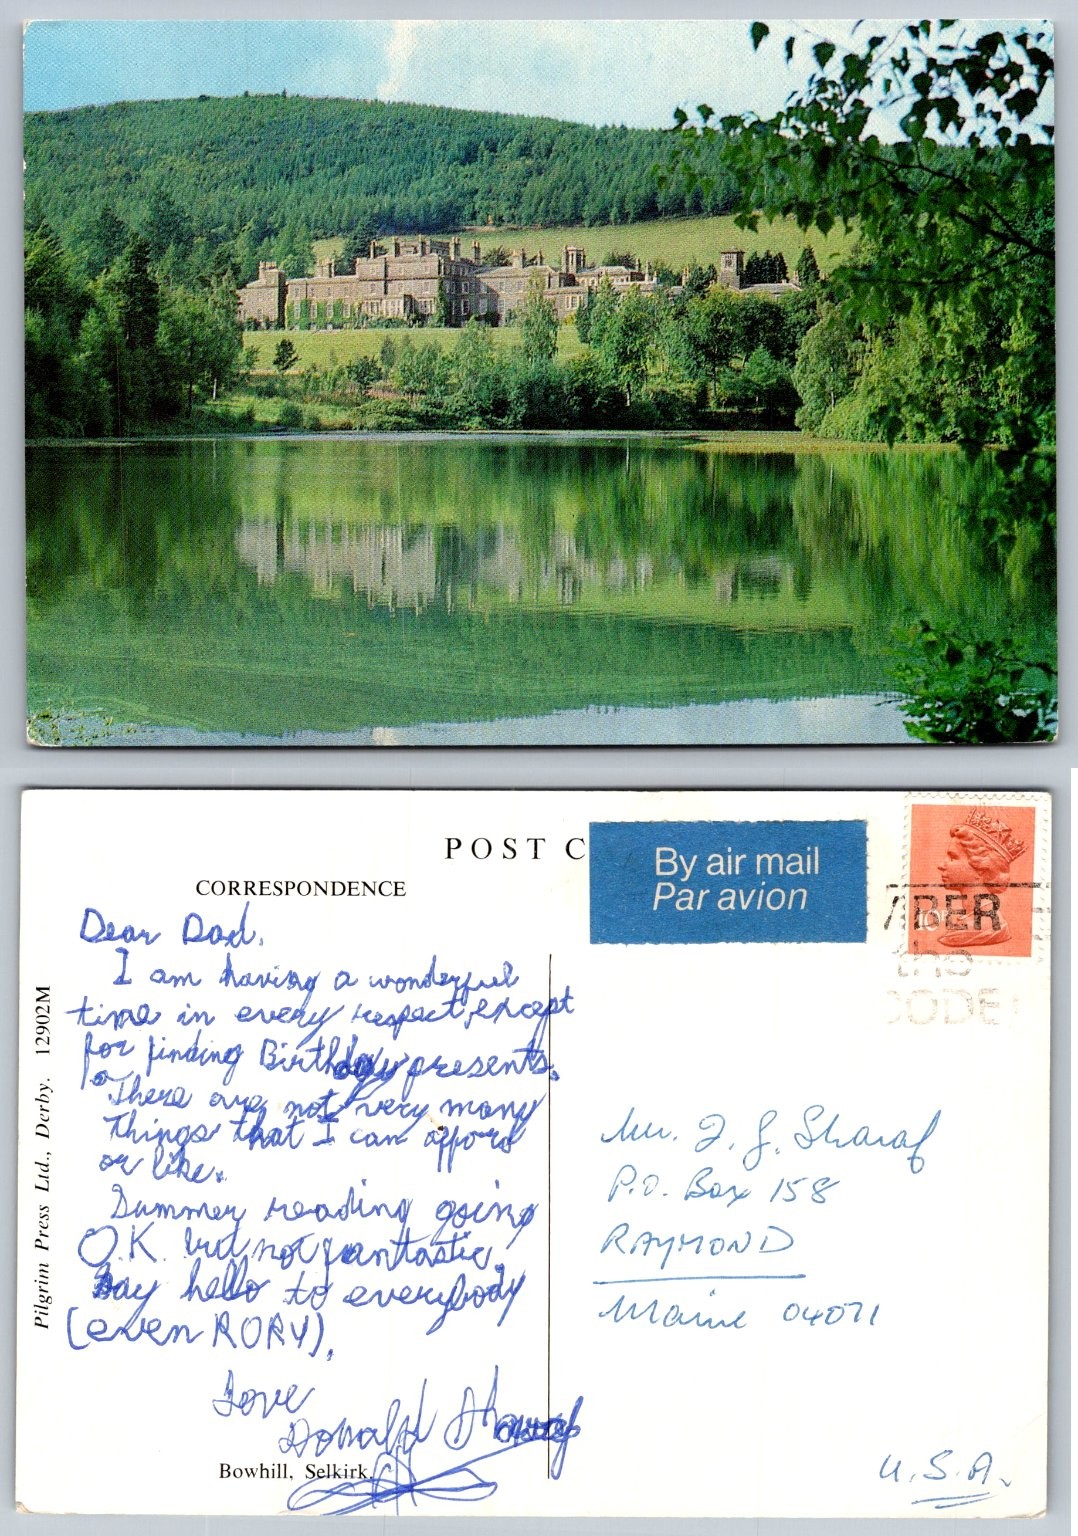 POST C
By air mail
Par avion
CORRESPONDENCE
10P
BER
the
CODE
Dear Dad,
I am having a wonderful
time in every respect, except
for finding Birthday presents.
There are not very many
things that I can afford
or like.
Summer reading going
O.K. but not fantastic.
Say hello to everybody
(even RORY).
Love
Donald Sharaf
Bowhill, Selkirk.
Pilgrim Press Ltd., Derby. 12902M
Mr. J. G. Sharaf
P.O. Box 158
RAYMOND
Maine 04071
U.S.A.